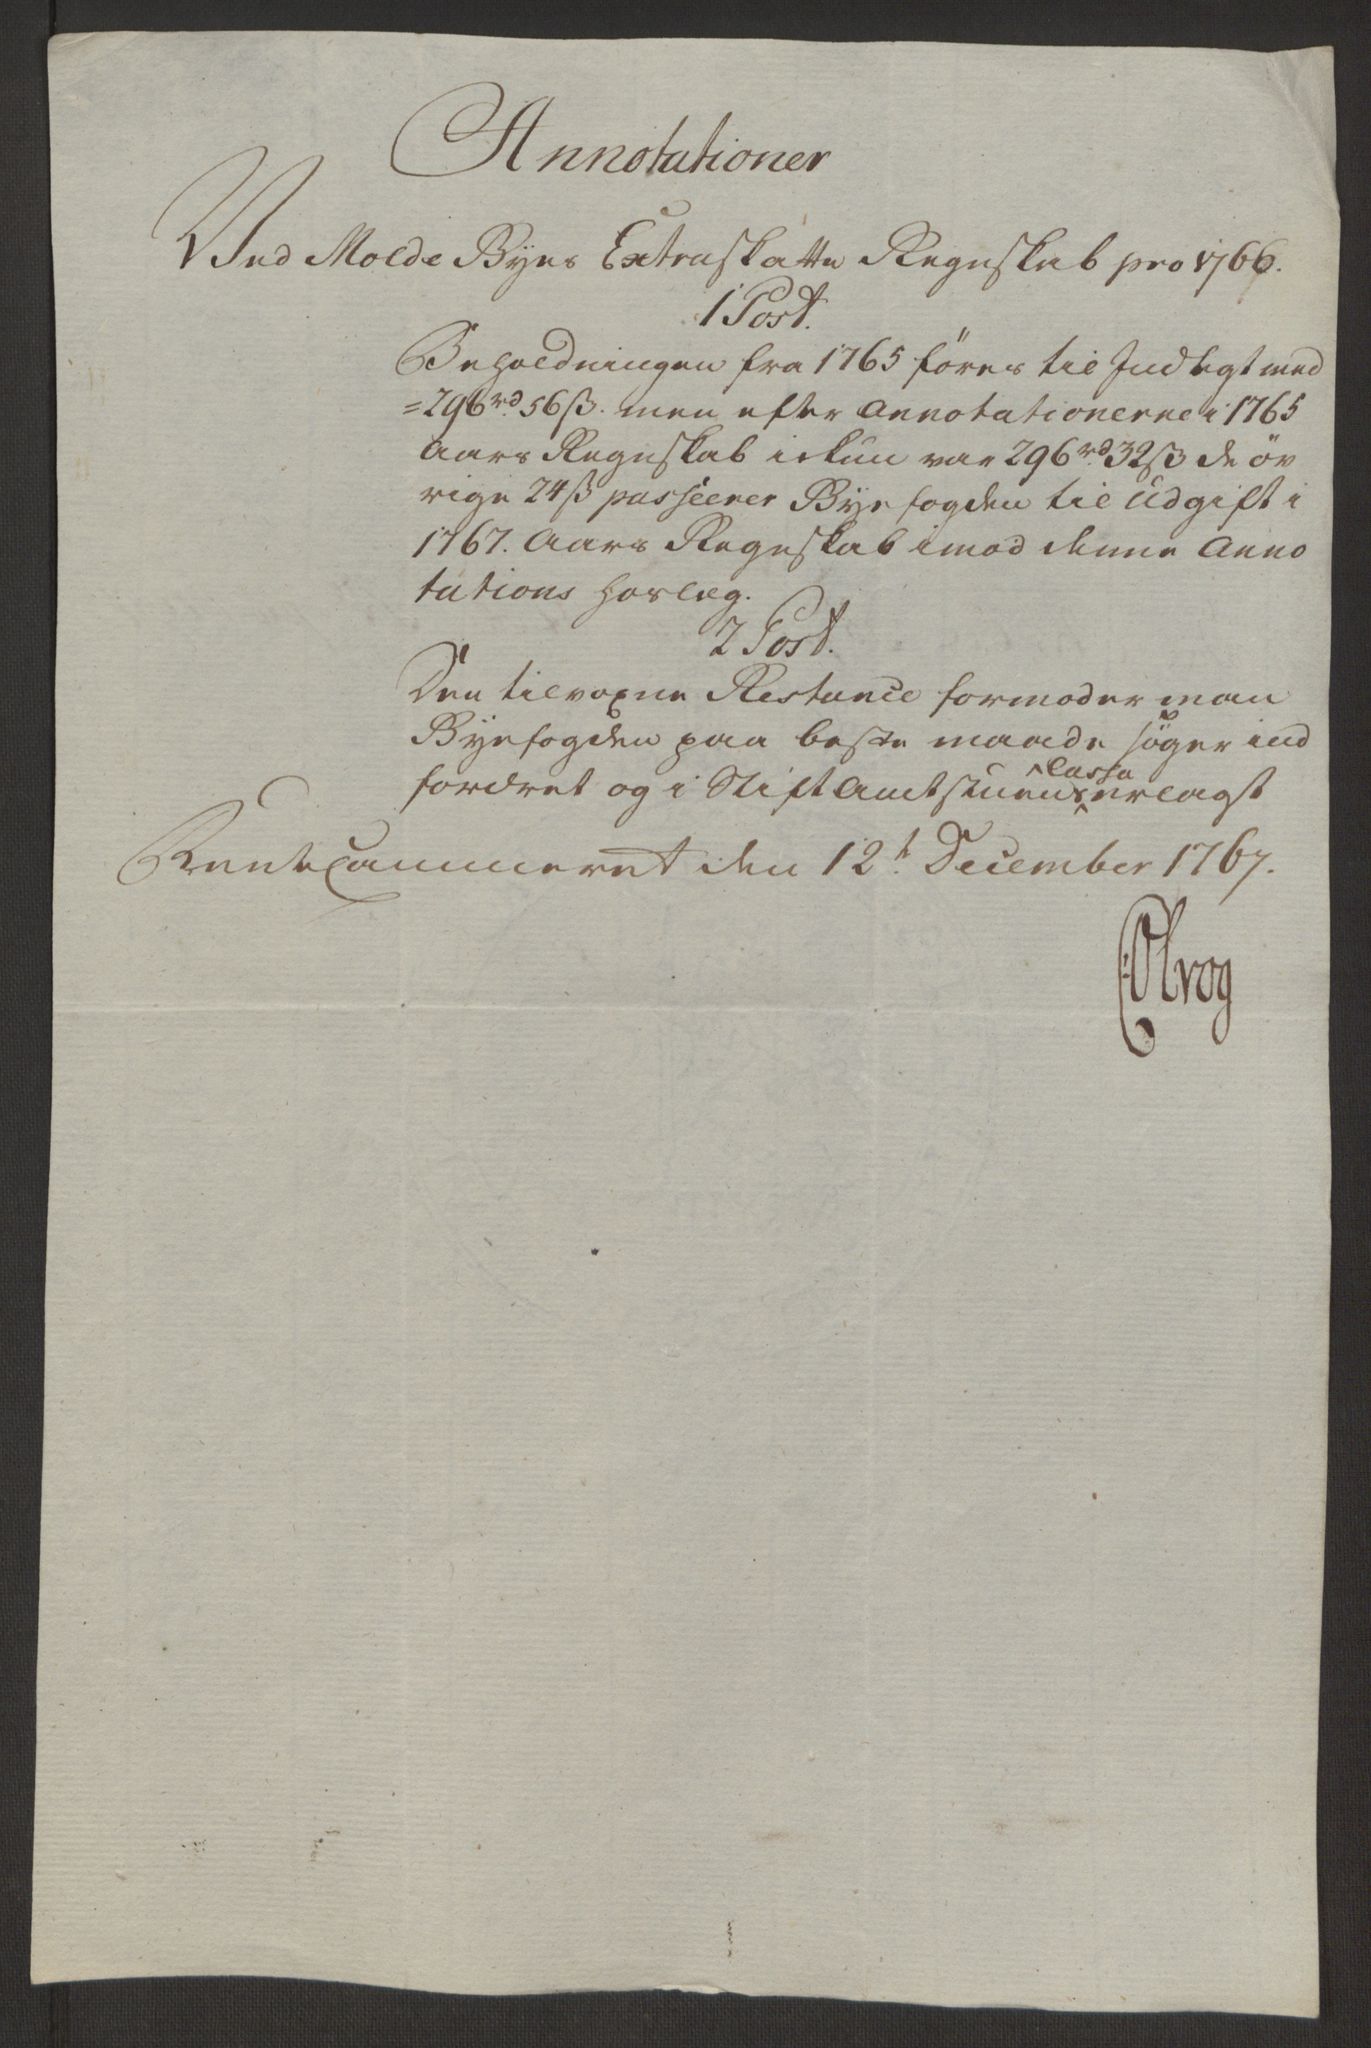 Annotationer
Ved Molde Byes Extraskatte Regnskab pro 1766.
1 Post.
Beholdningen fra 1765 föres til Indtegt med
=296rd 56ß. men efter Annotationerne i 1765
Aars Regnskab ickun var 296rd 32ß de öv
rige 24ß passeerer Byefogden til Udgift i
1767. Aars Regnskab imod denne Anno
tations horlæg.
2 Post.
Den tilvoxne Restance formoder man
Byefogden paa beste maade söger ind
fordret og i StiftAmtstuens Cassa erlagt
RenteCammeret den 12t December 1767.
Olrog